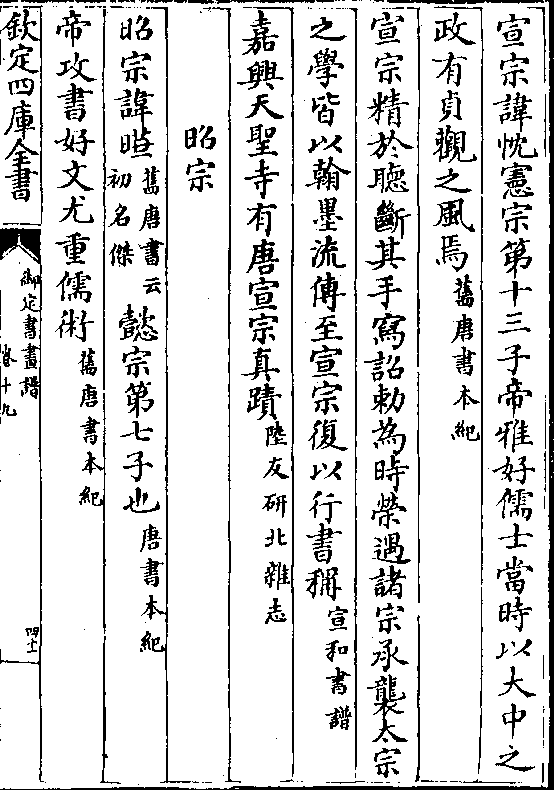 宣宗諱忱憲宗第十三子帝雅好儒士當時以大中之
政有貞觀之風焉舊唐書本紀
宣宗精於聽斷其手寫詔勅為時榮遇諸宗承襲太宗
之學皆以翰墨流傳至宣宗復以行書稱宣和書譜
嘉興天聖寺有唐宣宗真蹟陸友研北雜志
昭宗
昭宗諱曄舊唐書云初名傑懿宗第七子也唐書本紀
帝攻書好文尤重儒術舊唐書本紀
欽定四庫全書
御定書畫譜
卷十九
四十